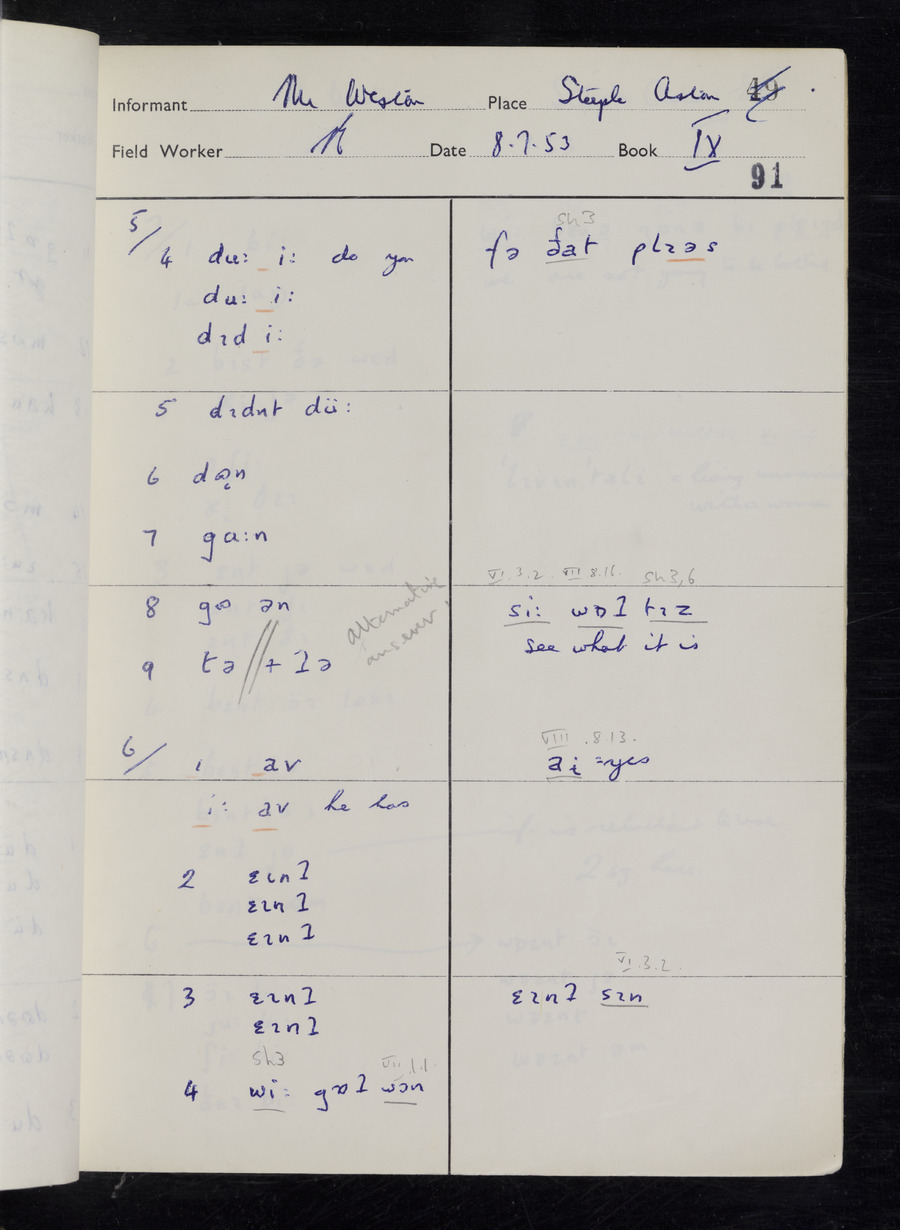 Informant Mr Weston Place Steeple Aston 49
Field Worker Date 8.7.53 Book IX
91
5/
sh3
4 duː iː do you
fə ðat plɪəs
duː iː
dɪd iː
5 dɪdnt düː
6
7 gaːn
VI.3.2. VII.8.16. sh3,6
8 ən
siː wɒʔ tɪz
alternative answer
see what it is
9 tə // + ʔə
6/
VIII.8.13.
1 av
aɪ = yes
iː av he has
2 ɛɪnʔ
ɛɪnʔ
ɛɪnʔ
VI.3.2.
3 ɛɪnʔ
ɛɪnʔ sɪn
ɛɪnʔ
sh3 VII.1.1.
4 wiː